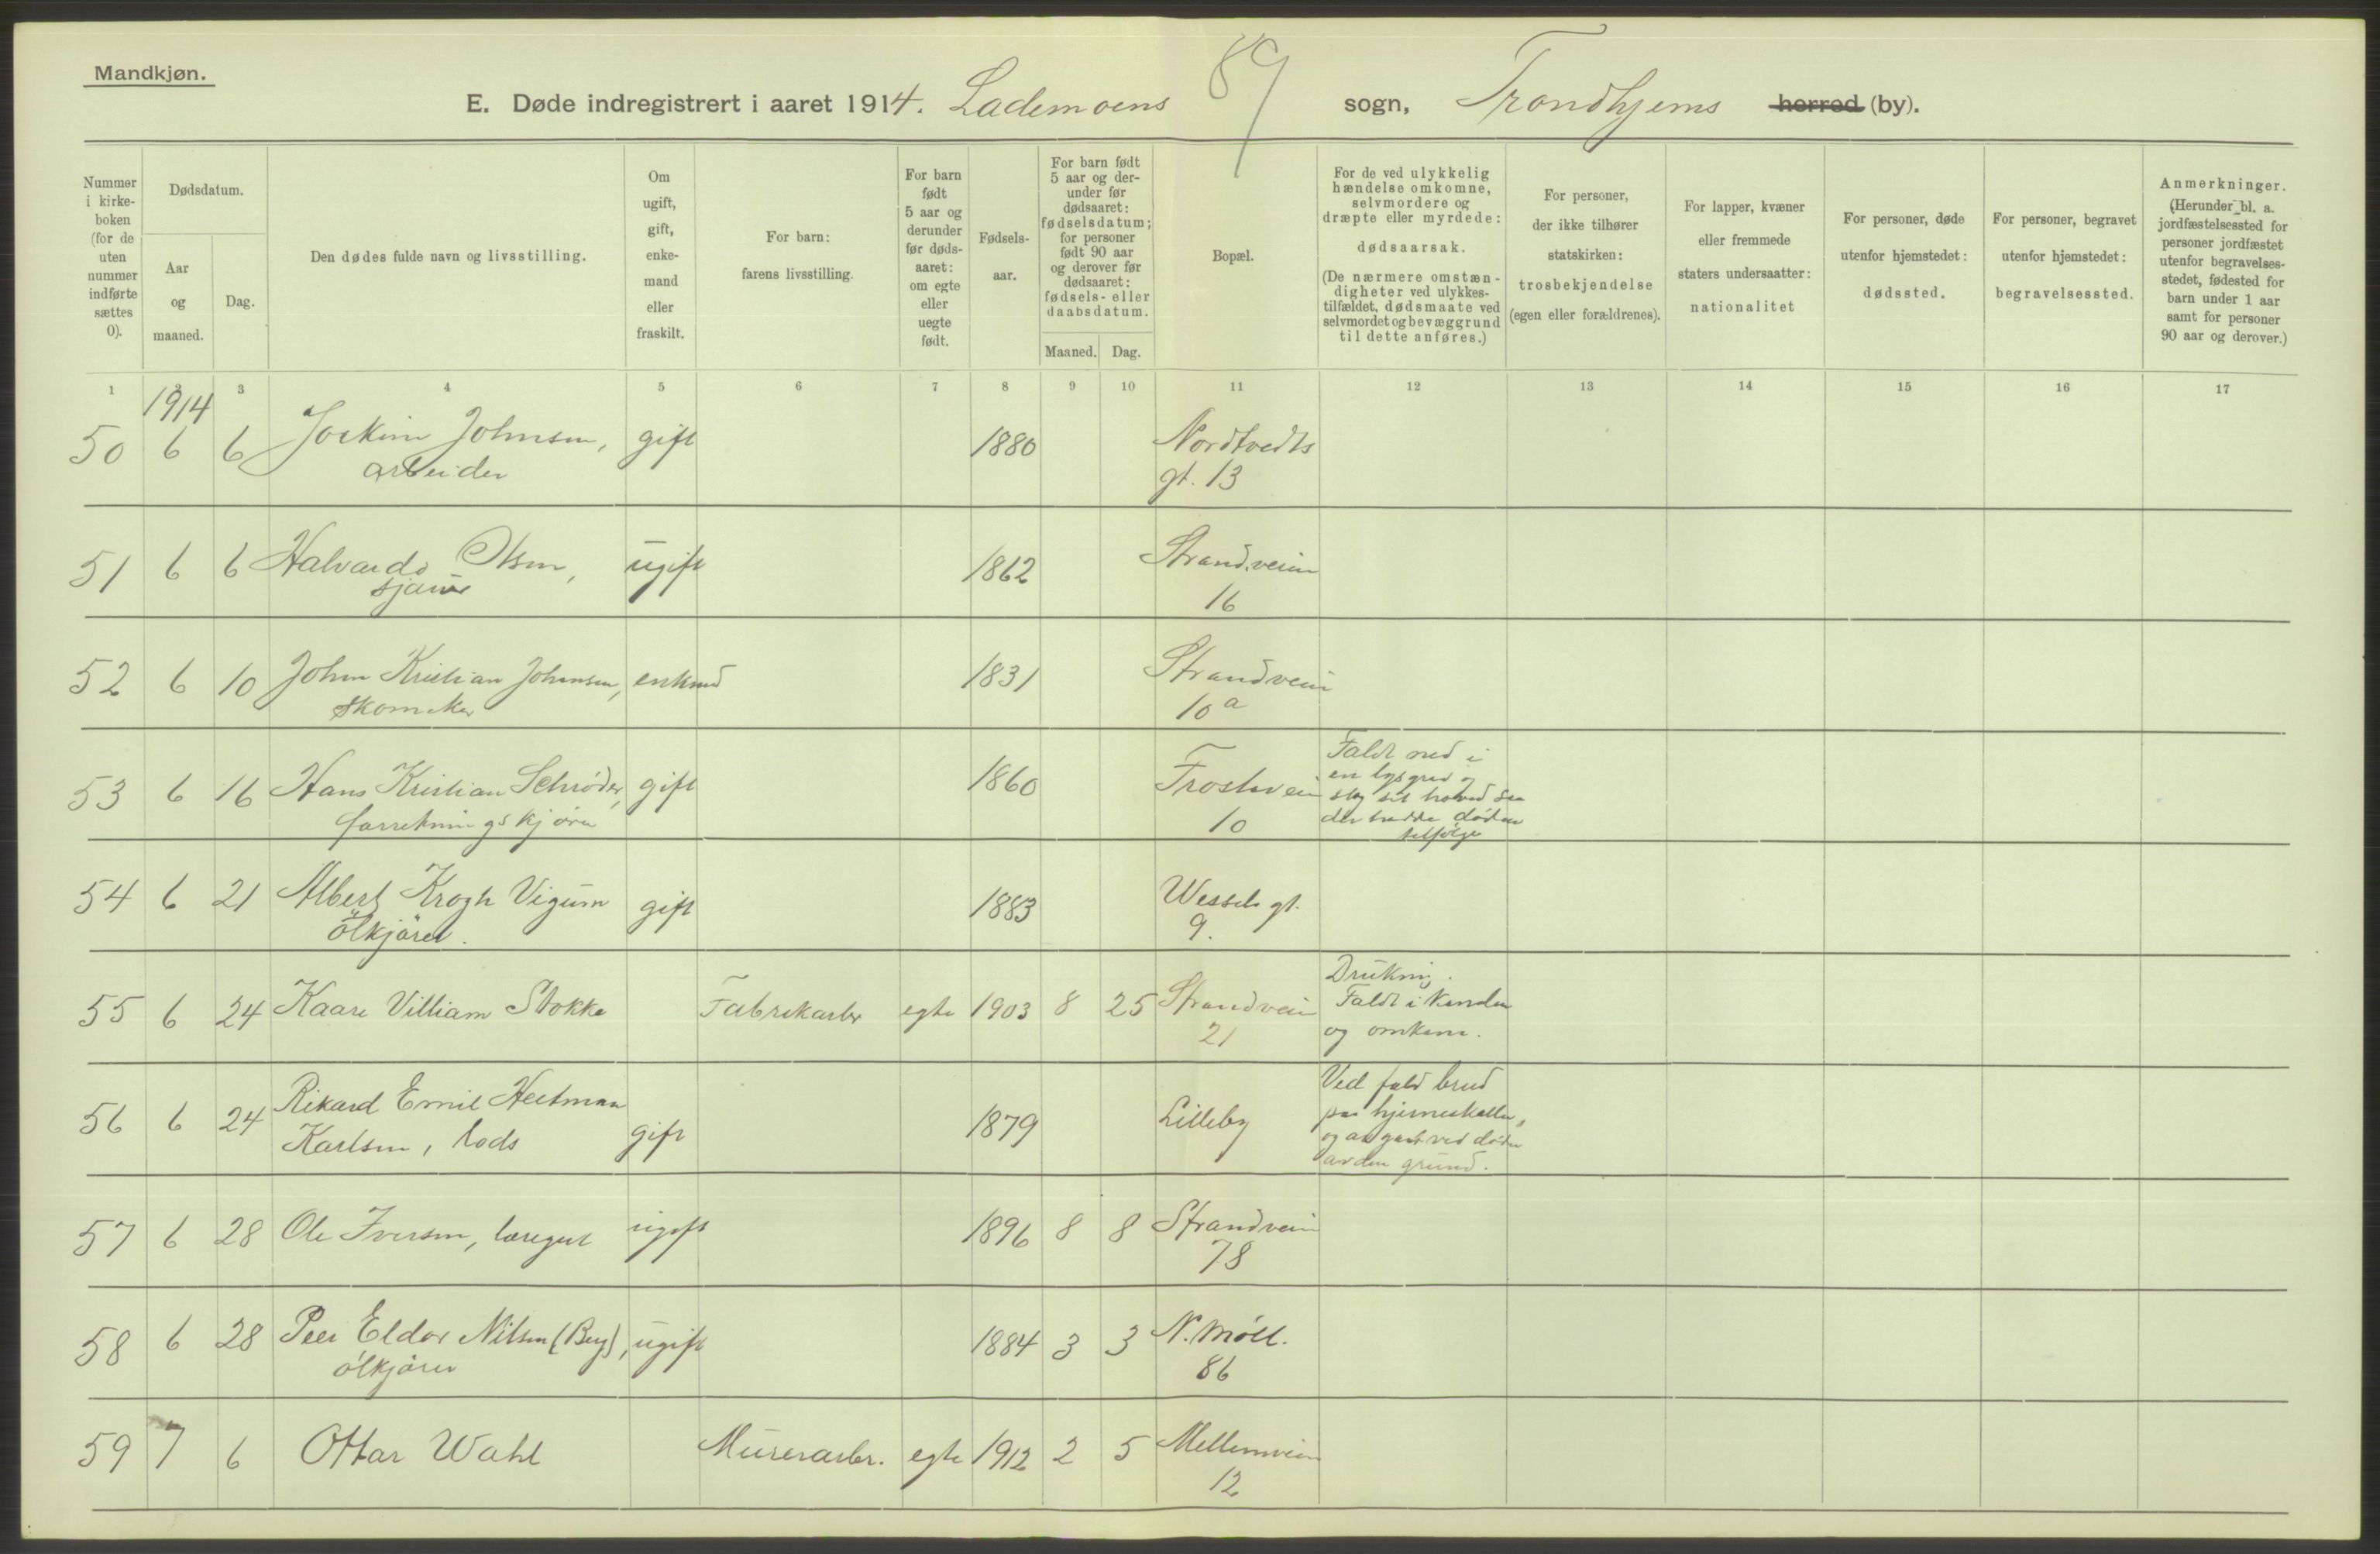 Mandkjøn.
89
E. Døde indregistrert i aaret 1914. Lademoens sogn, Trondhjems herred (by).
Nummer i kirkeboken (for de uten nummer indførte sættes 0).
Dødsdatum.
Aar og maaned.
Dag.
Den dødes fulde navn og livsstilling.
Om ugift, gift, enkemand eller fraskilt.
For barn: farens livsstilling.
For barn født 5 aar og derunder før dødsaaret: om egte eller uegte født.
Fødselsaar.
For barn født 5 aar og derunder før dødsaaret: fødselsdatum; for personer født 90 aar og derover før dødsaaret: fødsels- eller daabsdatum.
Maaned. Dag.
Bopæl.
For de ved ulykkelig hændelse omkomne, selvmordere og dræpte eller myrdede: dødsaarsak.
(De nærmere omstændigheter ved ulykkestilfældet, dødsmaate ved selvmordet og bevæggrund til dette anføres.)
For personer, der ikke tilhører statskirken: trosbekjendelse (egen eller forældrenes).
For lapper, kvæner eller fremmede staters undersaatter: nationalitet
For personer, døde utenfor hjemstedet: dødssted.
For personer, begravet utenfor hjemstedet: begravelsessted.
Anmerkninger. (Herunder bl. a. jordfæstelsessted for personer jordfæstet utenfor begravelsesstedet, fødested for barn under 1 aar samt for personer 90 aar og derover.)
1 2 3 4 5 6 7 8 9 10 11 12 13 14 15 16 17
1914
50 6 6 Joakim Johnsen, gift 1880 Nordtvedts
arbeider gt. 13
51 6 6 Halvard Olsen, ugift 1862 Strandveien
sjauer 16
52 6 10 John Kristian Johnsen, enkmd 1831 Strandvein
skomaker 10 a
53 6 16 Hans Kristian Schrøder, gift 1860 Frostavein
forretningskjører 10
Faldt ned i
en lysgrav og
slog sit hoved saa
det hadde døden
tilfølge
54 6 21 Albert Krogh Vigum gift 1883 Wessels gt.
ølkjører. 9.
55 6 24 Kaare Villiam Stokke Fabrikarbr egte 1903 8 25 Strandvein
21
Drukning.
Faldt i Kanalen
og omkom.
56 6 24 Rikard Emil Heitman
Karlsen, lods gift 1879 Lilleby
Ved fald brud
paa hjerneskallen,
og avgaat ved døden
av den grund.
57 6 28 Ole Iversen, læregut ugift 1896 8 8 Strandvein
78
58 6 28 Peer Eldor Nilsen (Berg), ugift 1884 3 3 N. Møll.
ølkjører 86
59 7 6 Ottar Wahl Murerarbr. egte 1912 2 5 Mellemveien
12